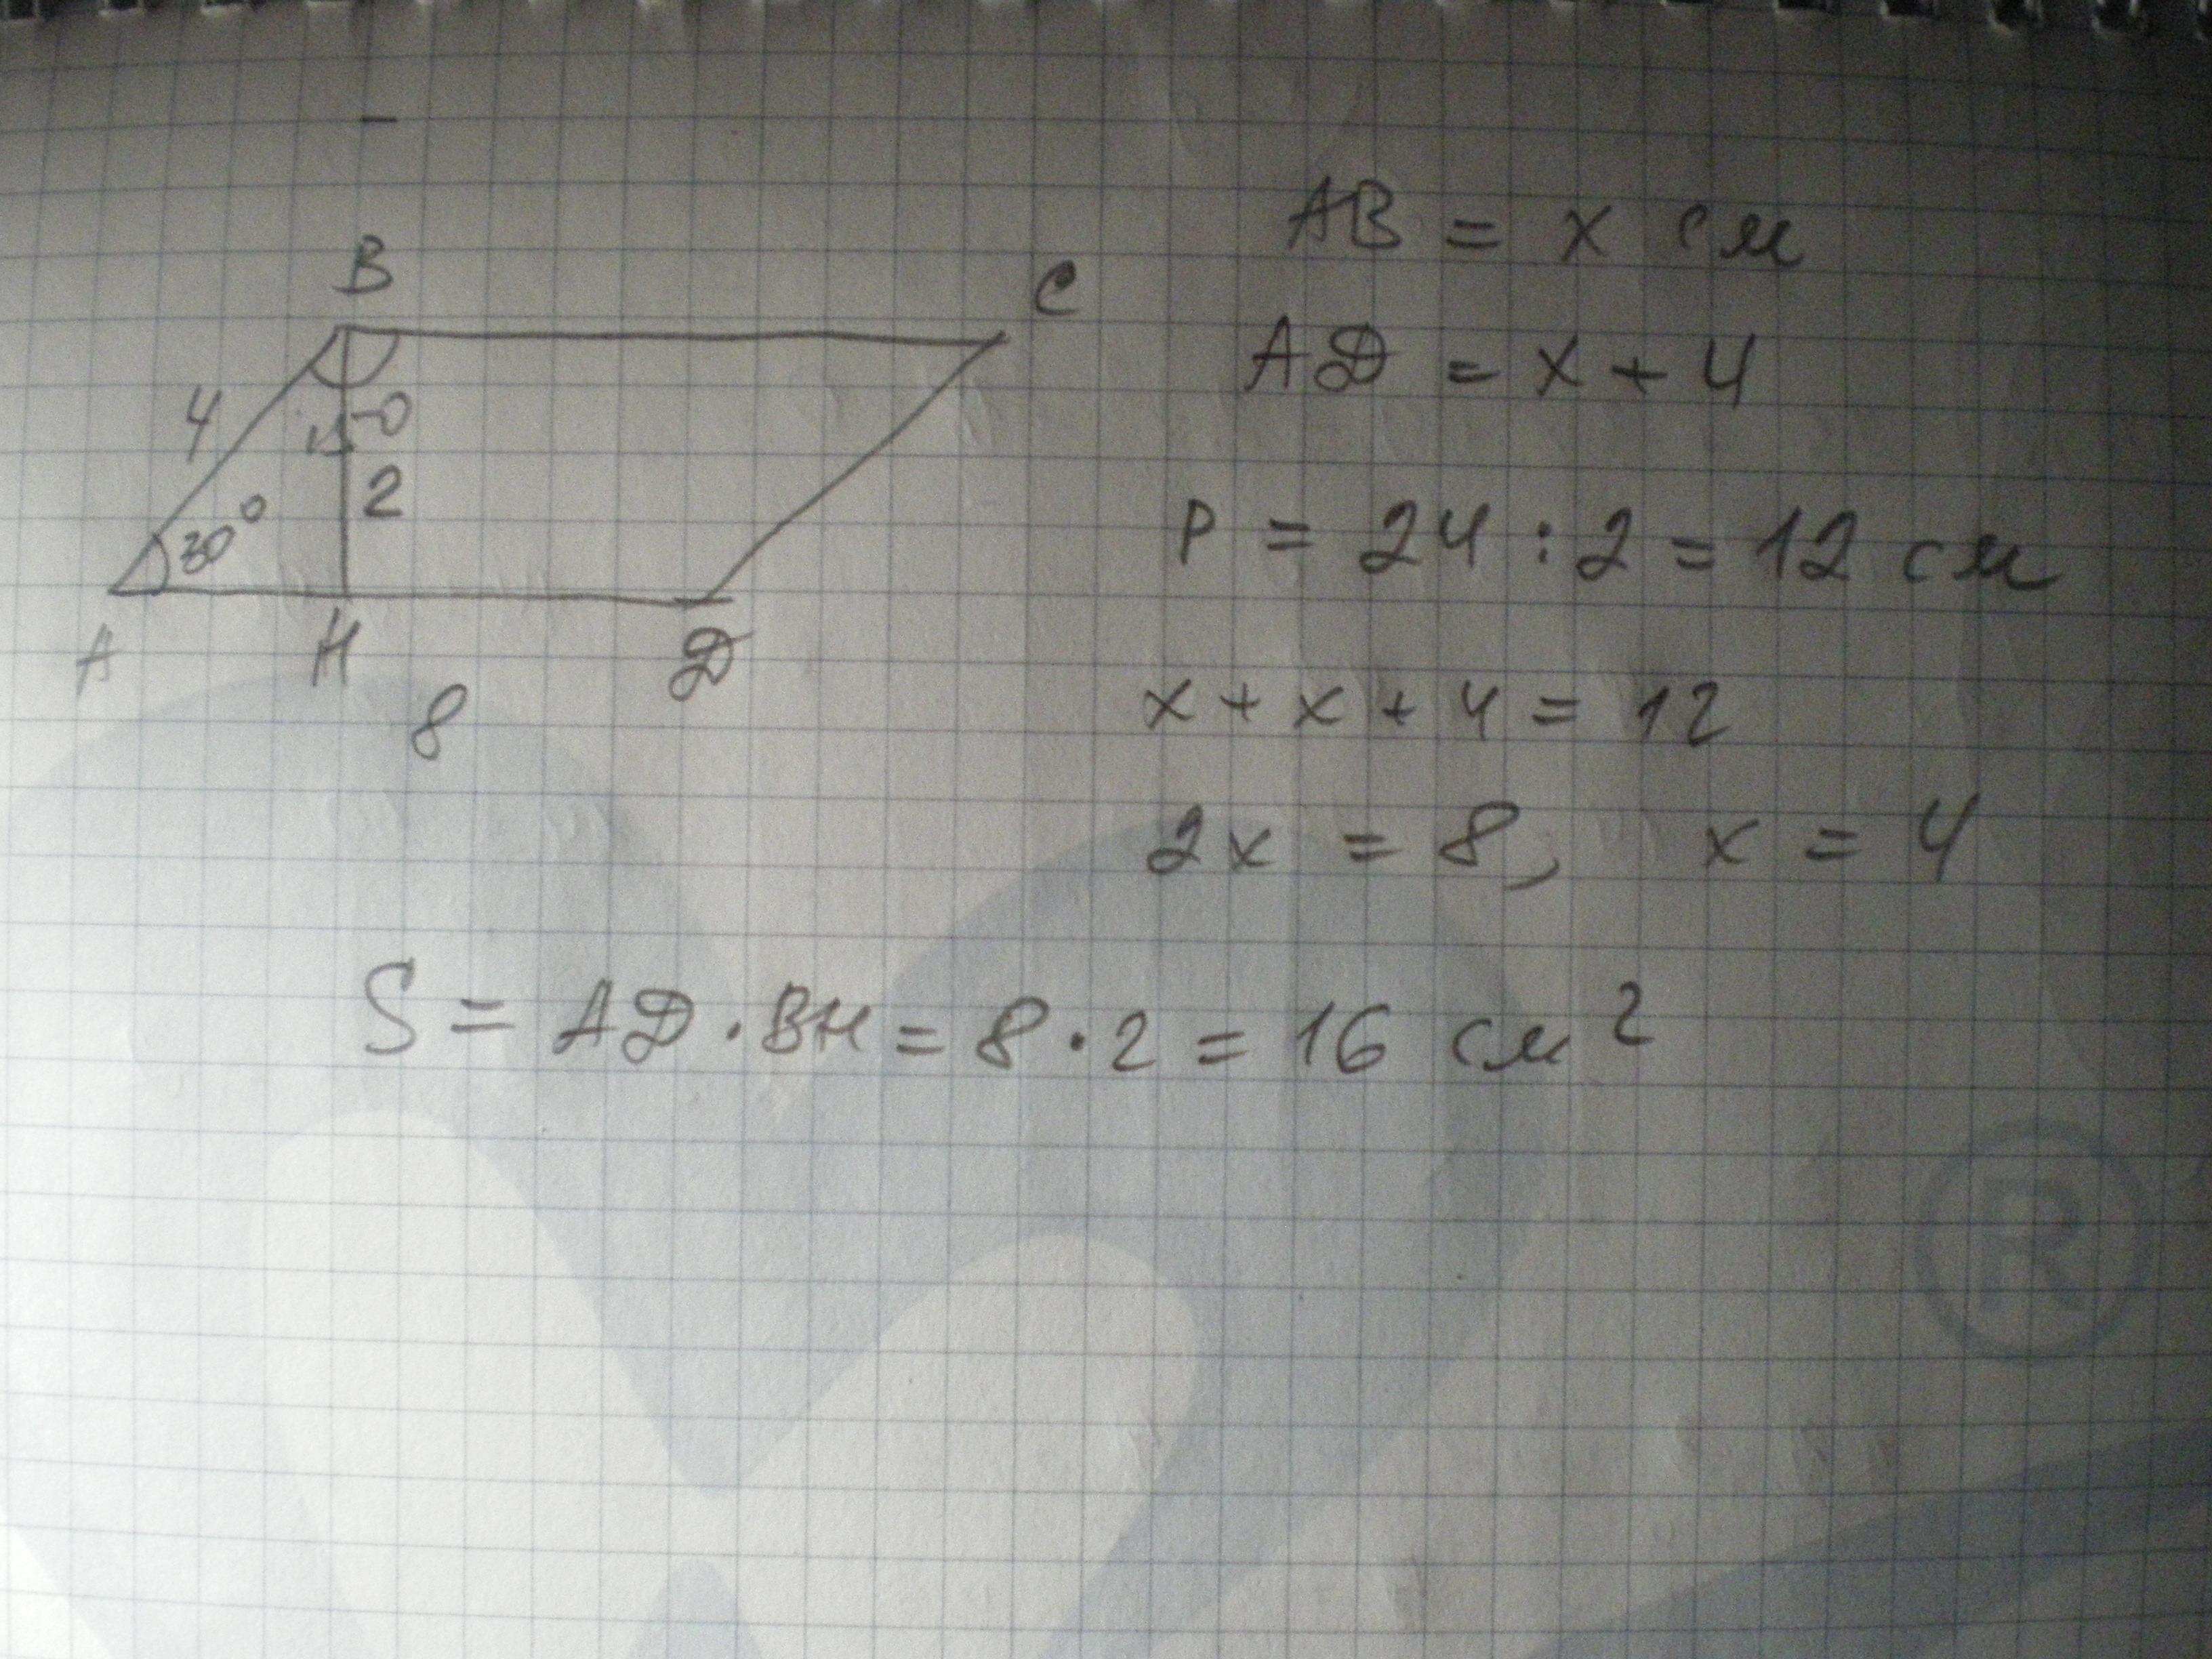 B
C
4
150
2
30°
A H D
8
AB = x см
AD = x + 4
P = 24 : 2 = 12 см
x + x + 4 = 12
2x = 8, x = 4
S = AD · BH = 8 · 2 = 16 см²
®